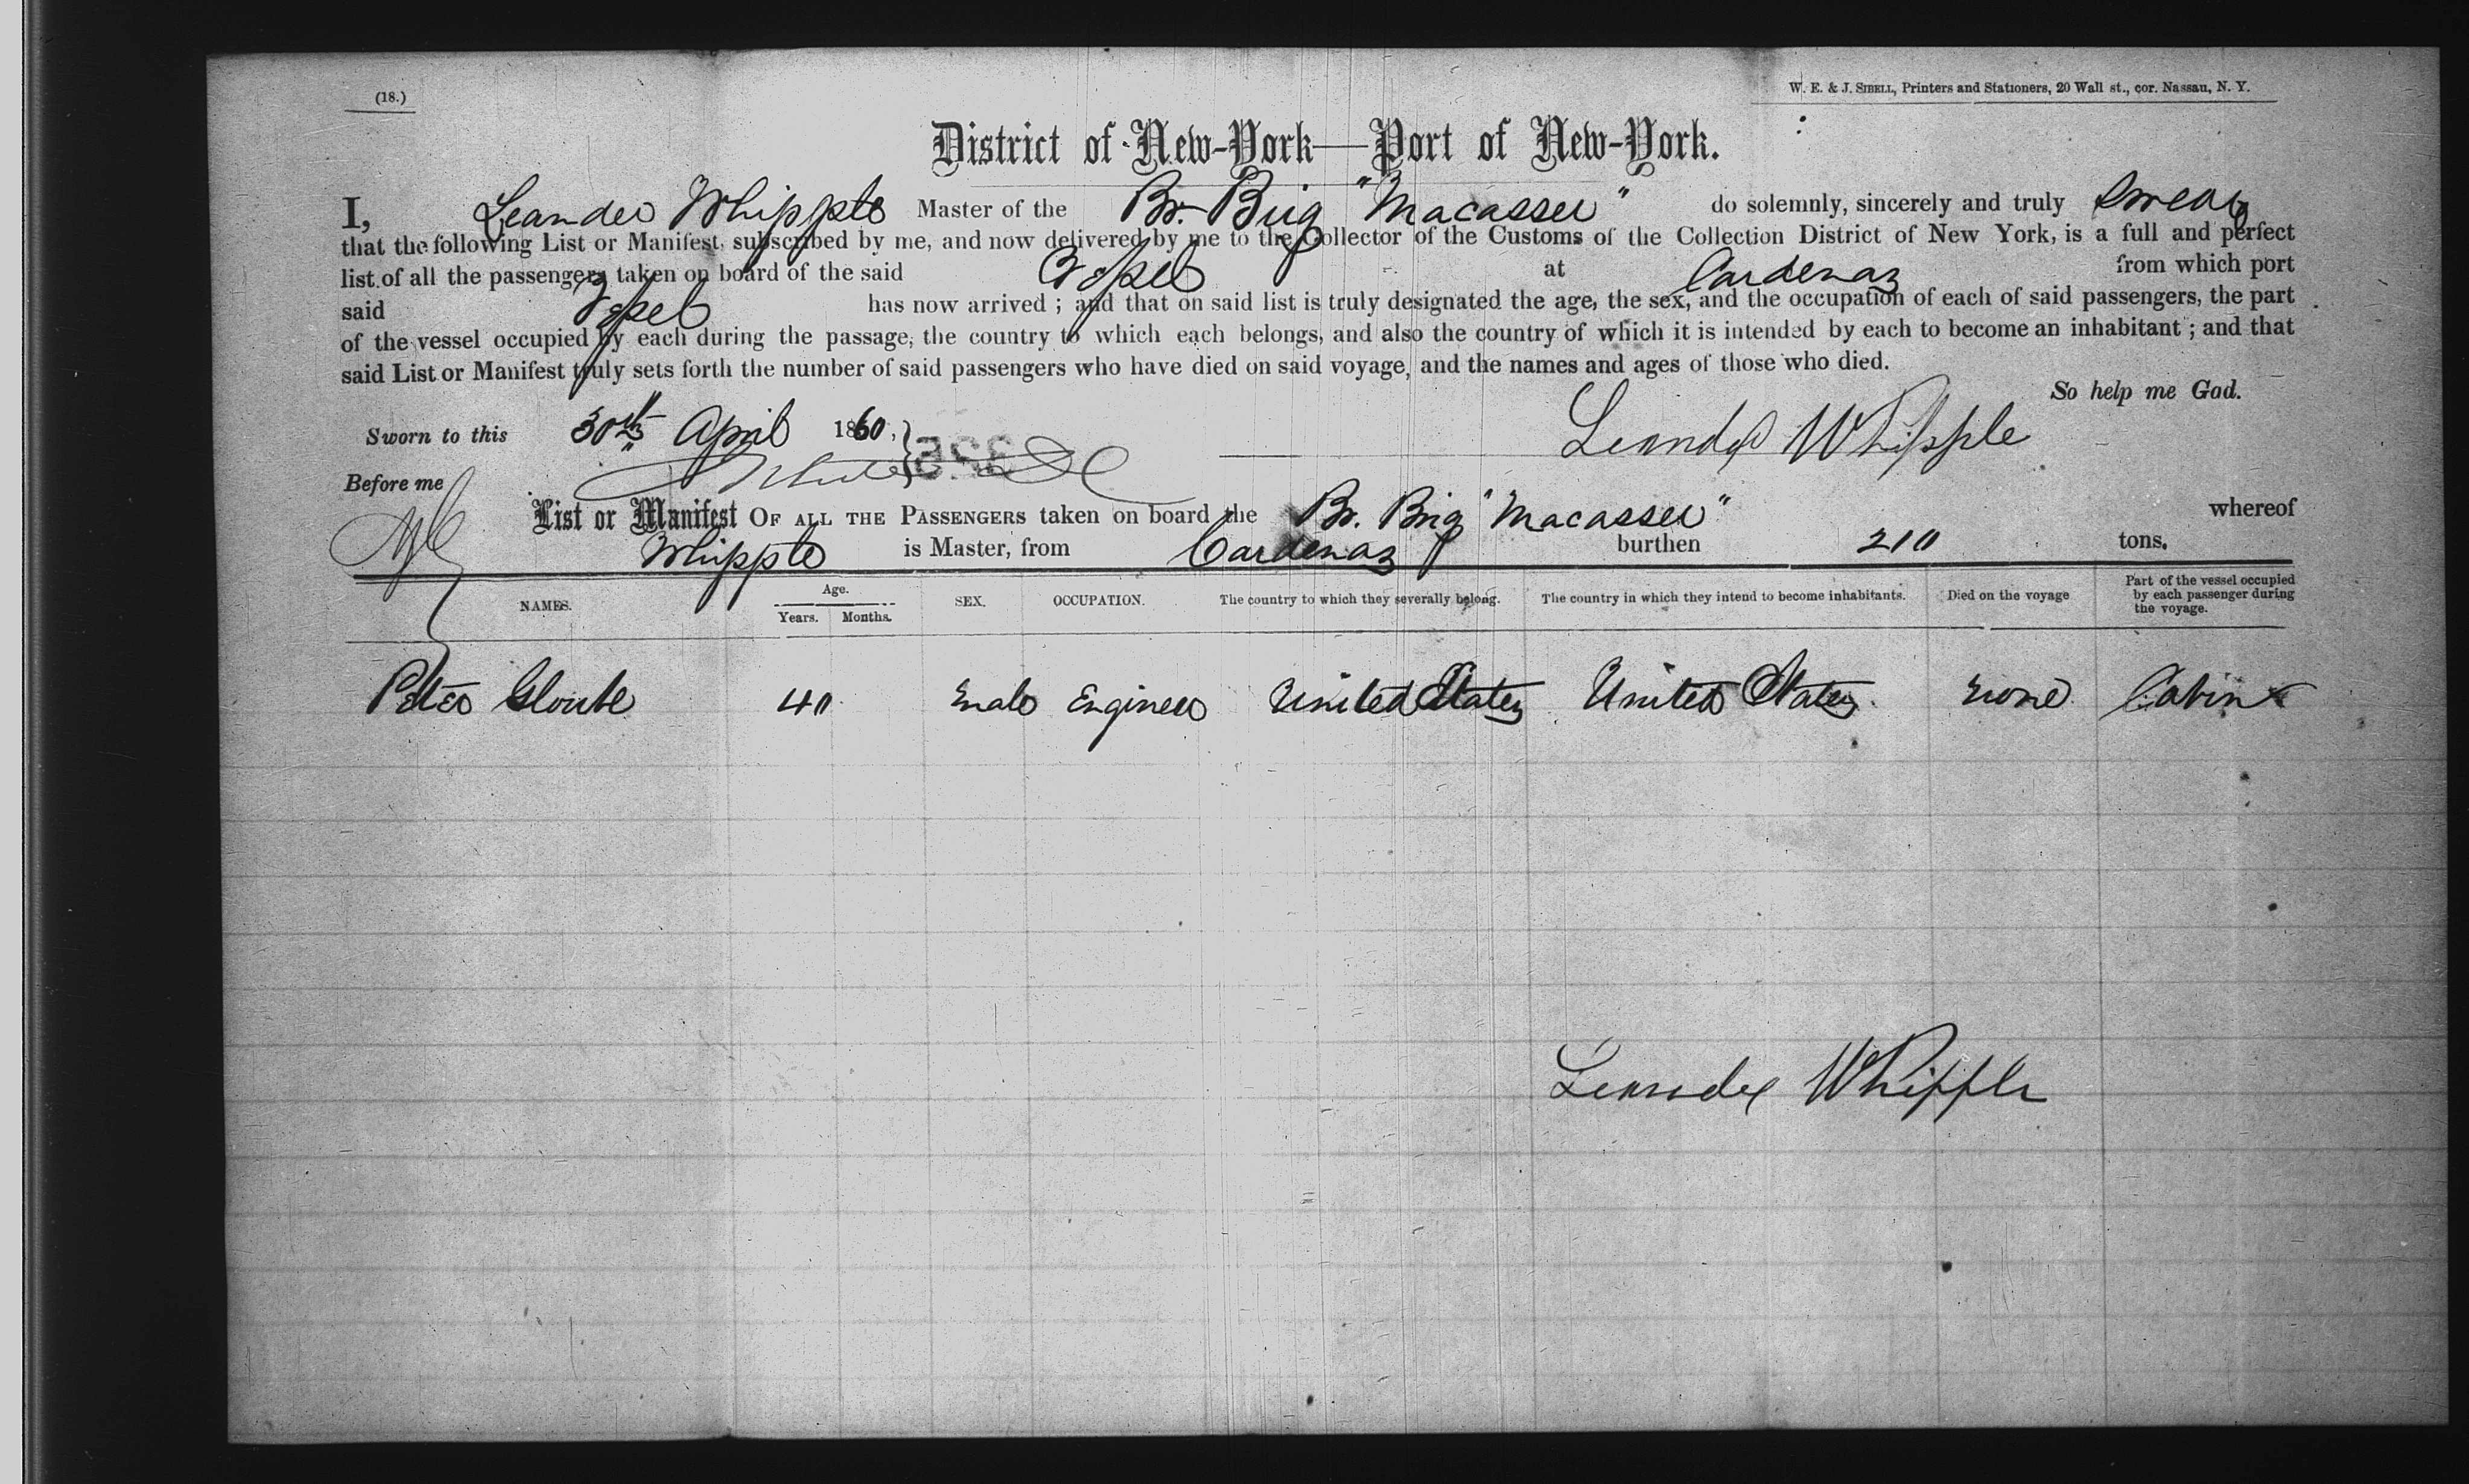 (18.)
W. E. & J. SIBELL, Printers and Stationers, 20 Wall st., cor. Nassau, N. Y.
District of New-York—Port of New-York.
I, Leander Whipple Master of the Br. Brig "Macasser" do solemnly, sincerely and truly swear
that the following List or Manifest, subscribed by me, and now delivered by me to the Collector of the Customs of the Collection District of New York, is a full and perfect
list of all the passengers taken on board of the said Vessel at Cardenas from which port
said Vessel has now arrived ; and that on said list is truly designated the age, the sex, and the occupation of each of said passengers, the part
of the vessel occupied by each during the passage, the country to which each belongs, and also the country of which it is intended by each to become an inhabitant ; and that
said List or Manifest truly sets forth the number of said passengers who have died on said voyage, and the names and ages of those who died.
So help me God.
Sworn to this 30th April 1860, Leander Whipple
Before me
List or Manifest OF ALL THE PASSENGERS taken on board the Br. Brig "Macasser" whereof
Whipple is Master, from Cardenas burthen 210 tons.
NAMES. Age. Years. Months. SEX. OCCUPATION. The country to which they severally belong. The country in which they intend to become inhabitants. Died on the voyage Part of the vessel occupied by each passenger during the voyage.
Peter 40 male Engineer United States United States none Cabin
Leander Whipple